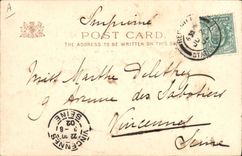 A
Imprimé
POST CARD.
THE ADDRESS TO BE WRITTEN ON THIS SIDE
Miss Marthe Delethez
9 Avenue des Sabotiers
Vincennes
Seine
VINCENNES
02
SEINE